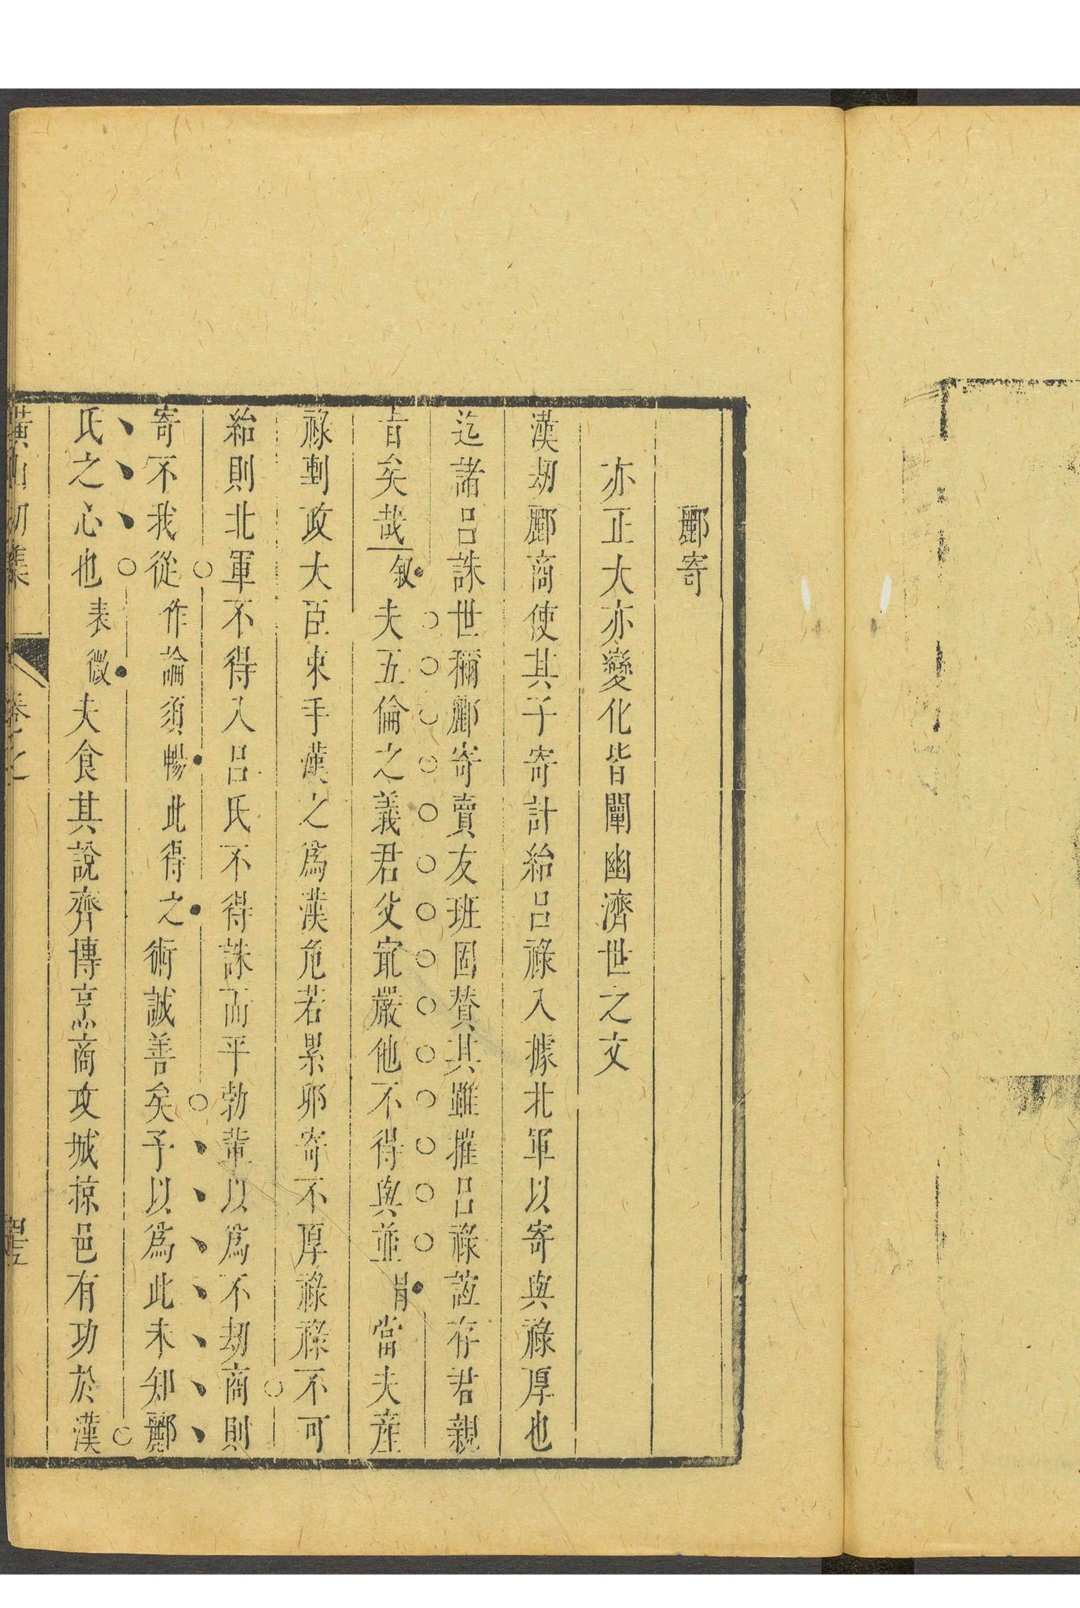 酈寄
亦正大亦變化皆闡幽濟世之文
漢刼酈商使其子寄計紿呂祿入據北軍以寄與祿厚也
迄諸呂誅世稱酈寄賣友班固贊其雖摧呂祿誼存君親
旨矣哉敘夫五倫之義君父寔嚴他不得與並 當夫產
祿剸政大臣束手漢之爲漢危若累卵寄不厚祿祿不可
紿則北軍不得入呂氏不得誅而平勃輩以爲不刼商則
寄不我從作論須暢此得之術誠善矣予以爲此未知酈
氏之心也表微夫食其說齊博烹商攻城掠邑有功於漢
橫山初集 卷之